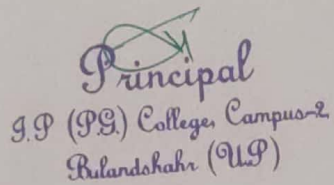 Principal
I.P (P.G.) College, Campus-2
Bulandshahr (U.P)